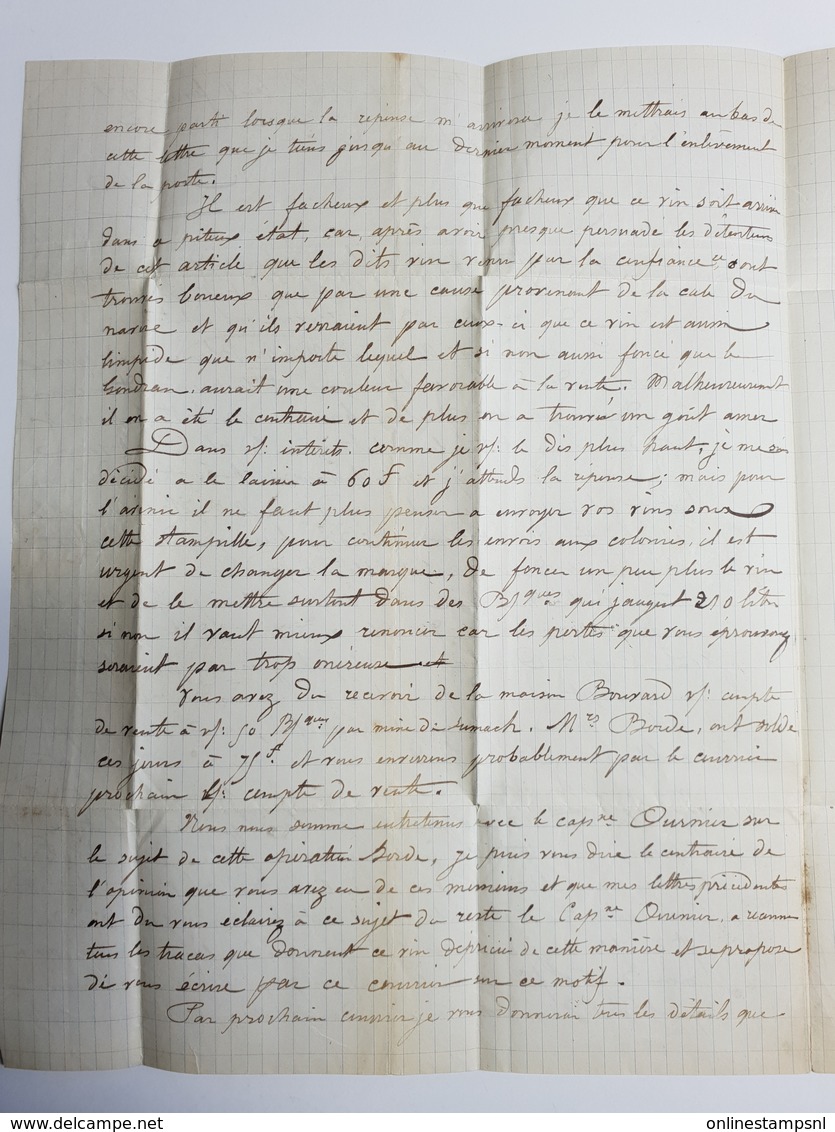 encore parti lorsque la réponse m'arrivera je le mettrais au bas de
cette lettre que je tiens jusqu'au dernier moment pour l'enlèvement
de la poste.
Il est facheux et plus que facheux que ce vin soit arrivé
dans a piteux état, car, après avoir presque persuadé les détenteurs
de cet article que les dits vin venu par la confiance, sont
trouvés boueux que par une cause provenant de la cale du
navire et qu'ils verraient par ceux-ci que ce vin est aussi
limpide que n'importe lequel et si non aussi foncé que le
Gondran, aurait une couleur favorable à la vente. Malheureusement
il en a été le contraire et de plus on a trouvé un goût amer
Dans v/. intérêts. comme je v/. le dis plus haut, je me suis
décidé a le laisser à 60 f et j'attends la réponse; mais pour
l'avenir il ne faut plus penser a envoyer vos vins sous
cette stampille, pour continuer les envois aux colonies, il est
urgent de changer la marque, de foncer un peu plus le vin
et de le mettre surtout dans des Bques qui jaugent 210 litres
si non il vaut mieux renoncer car les pertes que vous éprouverez
seraient par trop onéreuse
Vous avez du recevoir de la maison Bouvard v/. compte
de vente à v/. 50 Bques par mine de Sumach. Mrs Borde, ont soldé
ces jours à 75 f. et vous enverrons probablement par le courrier
prochain v/. compte de vente.
Nous nous somme entretenus avec le capne Ournier sur
le sujet de cette opération Borde, je puis vous dire le contraire de
l'opinion que vous avez eu de ces messieurs et que mes lettres précédentes
ont du vous éclairez à ce sujet du reste le Capne Ournier, a reconnu
tous les tracas que donnent ce vin déprécié de cette manière et se propose
de vous écrire par ce courrier sur ce motif.
Par prochain courrier je vous donnerai tous les détails que
delcampe.net
onlinestampsnl